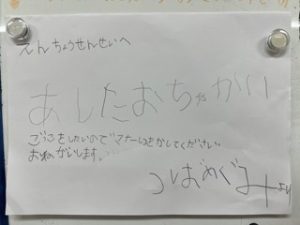 えんちょうせんせいへ
あしたおちゃがい
ごっこをしたいので マナーいすかしてください
おねがいします。
つばめぐみより